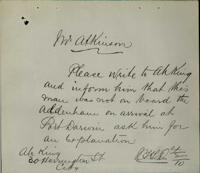 Mr Atkinson
Please write to Ah King
and inform him that this
man was not on board the
Aldenham on arrival at
Port Darwin ask him for
an Explanation
Ah King